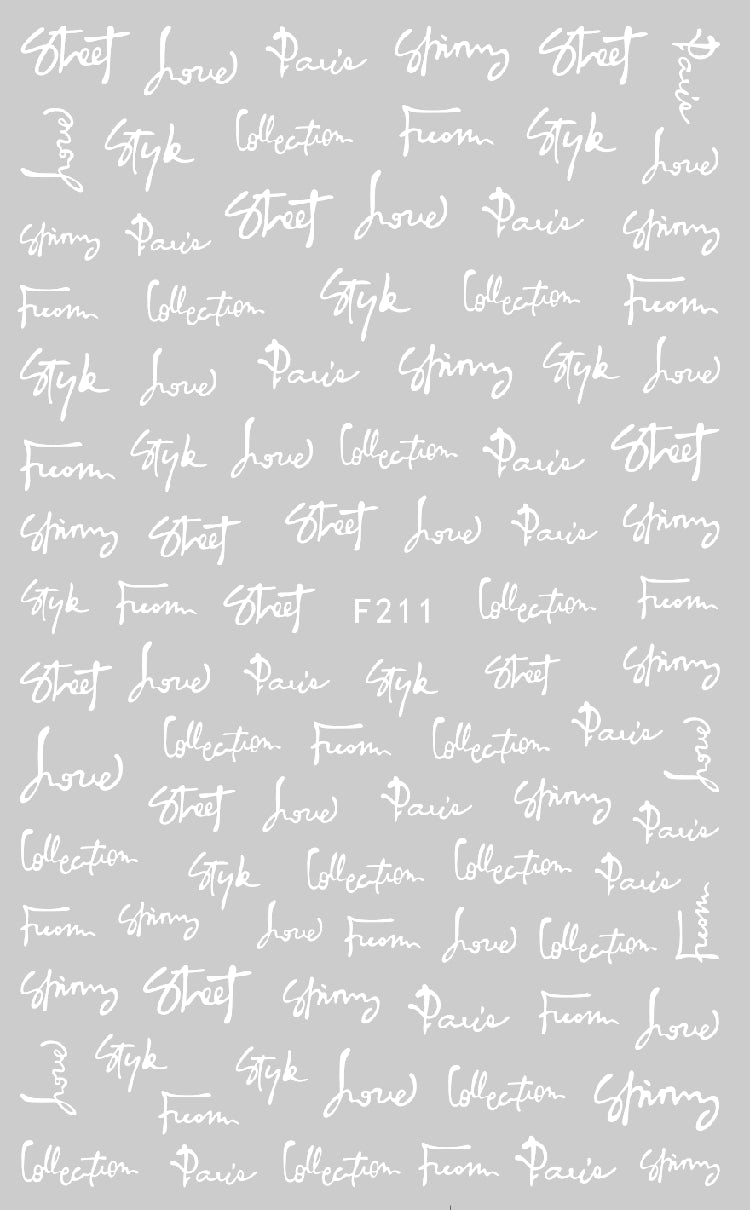 Street Love Paris Spinny Street Paris
Love Style Collection Fucom Style Love
Spinny Paris Street Love Paris Spinny
Fucom Collection Style Collection Fucom
Style Love Paris Spinny Style Love
Fucom Style Love Collection Paris Street
Spinny Street Street Love Paris Spinny
Style Fucom Street F211 Collection Fucom
Street Love Paris Style Street Spinny
Love Collection Fucom Collection Paris Love
Street Love Paris Spinny Paris
Collection Style Collection Collection Paris
Fucom Spinny Love Fucom Love Collection Fucom
Spinny Street Spinny Paris Fucom Love
Love Style Fucom Style Love Collection Spinny
Collection Paris Collection Fucom Paris Spinny